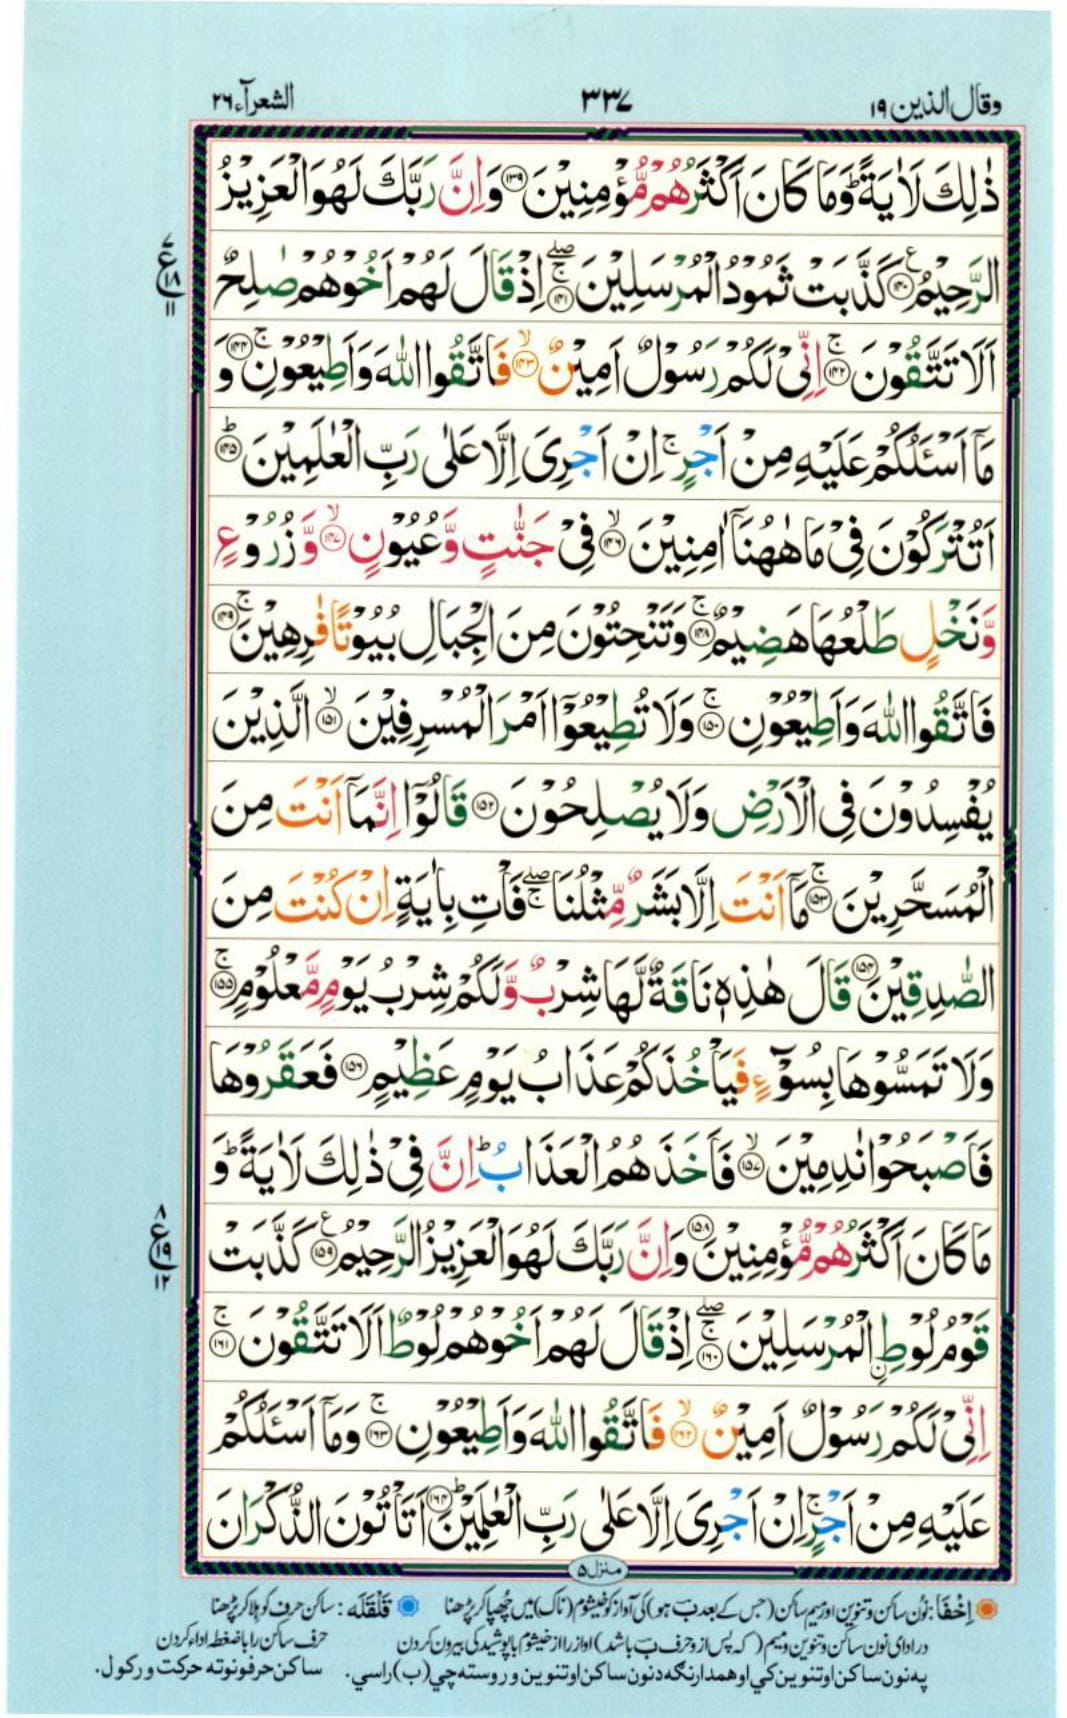 وقال الذین ۱۹
۳۳۷
الشعرآء ۲۶
ذٰلِكَ لَاٰیَةًؕ وَمَا كَانَ اَكْثَرُهُمْ مُّؤْمِنِیْنَ ۱۳۹ وَاِنَّ رَبَّكَ لَهُوَ الْعَزِیْزُ
الرَّحِیْمُ ۱۴۰ع كَذَّبَتْ ثَمُوْدُ الْمُرْسَلِیْنَ ۱۴۱ۚۖ اِذْ قَالَ لَهُمْ اَخُوْهُمْ صٰلِحٌ
۷
ع
۱۸
۱۱
اَلَا تَتَّقُوْنَ ۱۴۲ۚ اِنِّیْ لَكُمْ رَسُوْلٌ اَمِیْنٌ ۱۴۳ۙ فَاتَّقُوا اللّٰهَ وَاَطِیْعُوْنِ ۱۴۴ۚ وَ
مَاۤ اَسْـَٔلُكُمْ عَلَیْهِ مِنْ اَجْرٍۚ اِنْ اَجْرِیَ اِلَّا عَلٰی رَبِّ الْعٰلَمِیْنَ ۱۴۵ؕ
اَتُتْرَكُوْنَ فِیْ مَا هٰهُنَاۤ اٰمِنِیْنَ ۱۴۶ۙ فِیْ جَنّٰتٍ وَّعُیُوْنٍ ۱۴۷ۙ وَّزُرُوْعٍ
وَّنَخْلٍ طَلْعُهَا هَضِیْمٌ ۱۴۸ۚ وَتَنْحِتُوْنَ مِنَ الْجِبَالِ بُیُوْتًا فٰرِهِیْنَ ۱۴۹ۚ
فَاتَّقُوا اللّٰهَ وَاَطِیْعُوْنِ ۱۵۰ۚ وَلَا تُطِیْعُوْۤا اَمْرَ الْمُسْرِفِیْنَ ۱۵۱ۙ الَّذِیْنَ
یُفْسِدُوْنَ فِی الْاَرْضِ وَلَا یُصْلِحُوْنَ ۱۵۲ قَالُوْۤا اِنَّمَاۤ اَنْتَ مِنَ
الْمُسَحَّرِیْنَ ۱۵۳ۚ مَاۤ اَنْتَ اِلَّا بَشَرٌ مِّثْلُنَا ۚۖ فَاْتِ بِاٰیَةٍ اِنْ كُنْتَ مِنَ
الصّٰدِقِیْنَ ۱۵۴ قَالَ هٰذِهٖ نَاقَةٌ لَّهَا شِرْبٌ وَّلَكُمْ شِرْبُ یَوْمٍ مَّعْلُوْمٍ ۱۵۵ۚ
وَلَا تَمَسُّوْهَا بِسُوْٓءٍ فَیَاْخُذَكُمْ عَذَابُ یَوْمٍ عَظِیْمٍ ۱۵۶ فَعَقَرُوْهَا
فَاَصْبَحُوْا نٰدِمِیْنَ ۱۵۷ۙ فَاَخَذَهُمُ الْعَذَابُؕ اِنَّ فِیْ ذٰلِكَ لَاٰیَةًؕ وَ
مَا كَانَ اَكْثَرُهُمْ مُّؤْمِنِیْنَ ۱۵۸ وَاِنَّ رَبَّكَ لَهُوَ الْعَزِیْزُ الرَّحِیْمُ ۱۵۹ع كَذَّبَتْ
۸
ع
۱۹
۱۲
قَوْمُ لُوْطِ ِ۟الْمُرْسَلِیْنَ ۱۶۰ۚۖ اِذْ قَالَ لَهُمْ اَخُوْهُمْ لُوْطٌ اَلَا تَتَّقُوْنَ ۱۶۱ۚ
اِنِّیْ لَكُمْ رَسُوْلٌ اَمِیْنٌ ۱۶۲ۙ فَاتَّقُوا اللّٰهَ وَاَطِیْعُوْنِ ۱۶۳ۚ وَمَاۤ اَسْـَٔلُكُمْ
عَلَیْهِ مِنْ اَجْرٍۚ اِنْ اَجْرِیَ اِلَّا عَلٰی رَبِّ الْعٰلَمِیْنَ ۱۶۴ؕ اَتَاْتُوْنَ الذُّكْرَانَ
منزل ۵
اِخْفَا: نُون ساکن و تنوین اور میم ساکن (جس کے بعد ب ہو) کی آواز کو خیشوم (ناک) میں چُھپا کر پڑھنا قَلْقَلَه: ساکن حرف کو ہلا کر پڑھنا
در ادای نون ساکن و تنوین و میم (که پس از و حرف ب باشد) آواز را از خیشوم با پوشیدگی بیرون کردن حرف ساکن را با ضغطه ادا کردن
په نون ساکن او تنوین کې او همدارنګه د نون ساکن او تنوین وروسته چې (ب) راسي. ساکن حرفونو ته حرکت ورکول.